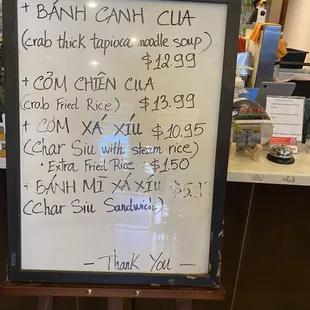 + BÁNH CANH CUA
(crab thick tapioca noodle soup)
$12.99
+ CƠM CHIÊN CUA
(Crab Fried Rice) $13.99
+ CƠM XÁ XÍU $10.95
(Char Siu with steam rice)
• Extra Fried Rice $1.50
+ BÁNH MÌ XÁ XÍU
(Char Siu Sandwich)
— Thank You —